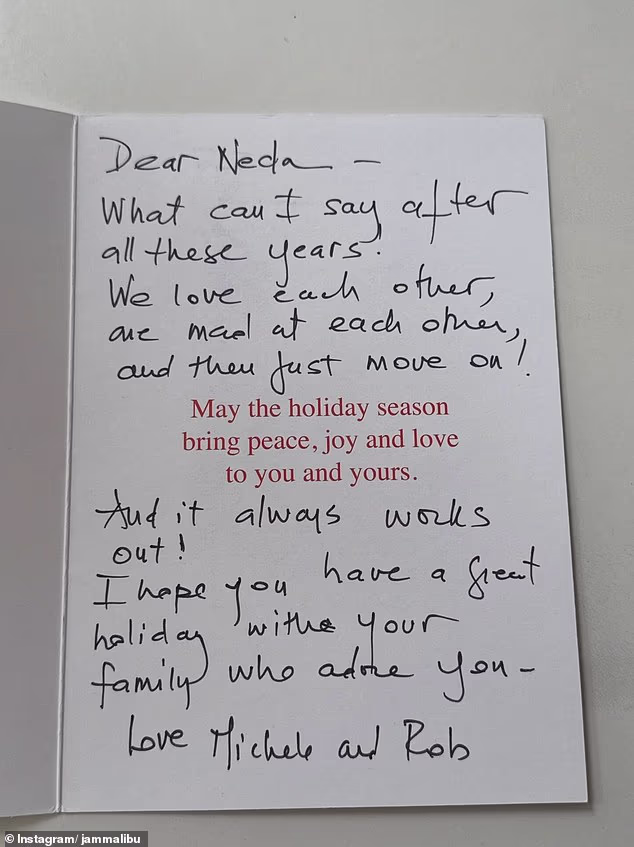 Dear Neda —
What can I say after
all these years!
We love each other,
are mad at each other,
and then just move on!
May the holiday season
bring peace, joy and love
to you and yours.
And it always works
out!
I hope you have a great
holiday withe your
family who adore you –
Love Michele and Rob
© Instagram/ jammalibu